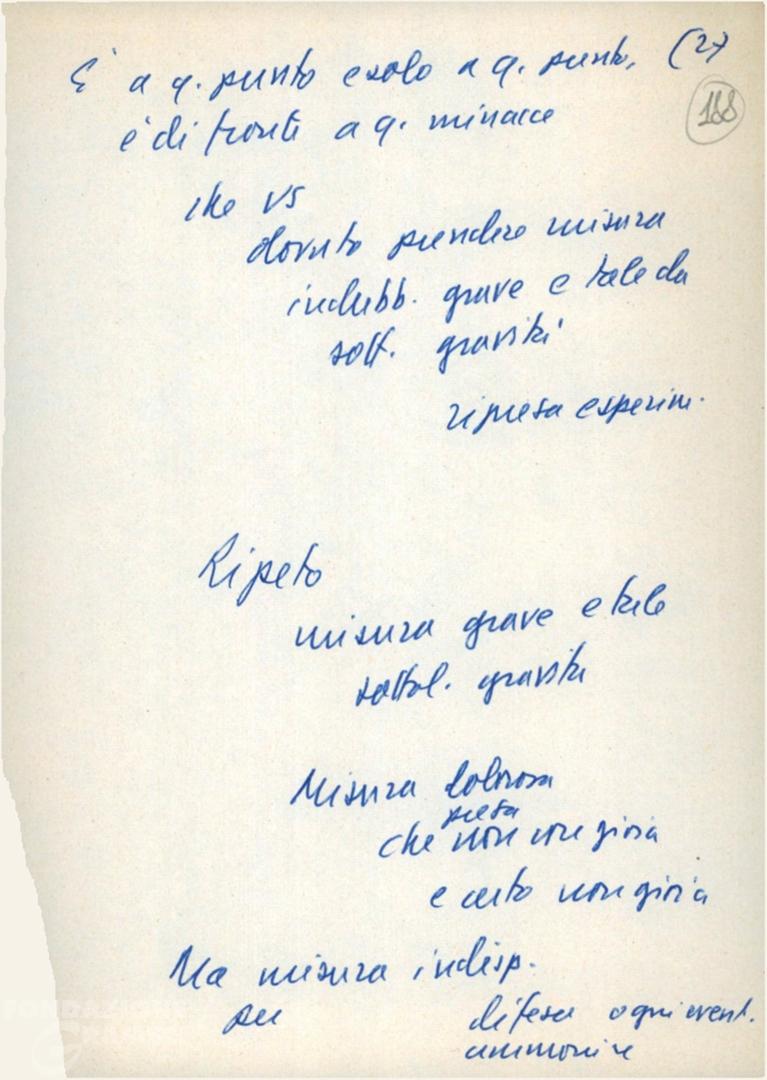 E' a q. punto e solo a q. punto, (2)
188
è di fronte a q. minacce
che VS
dovuto prendere misura
indubb. grave e tale da
sott. gravità
ripresa esperim.
Ripeto
misura grave e tale
sottol. gravità
Misura dolorosa
presa
che non con gioia
e certo non gioia
Ma misura indisp.
per difesa ogni event.
ammonire
FONDAZIONE